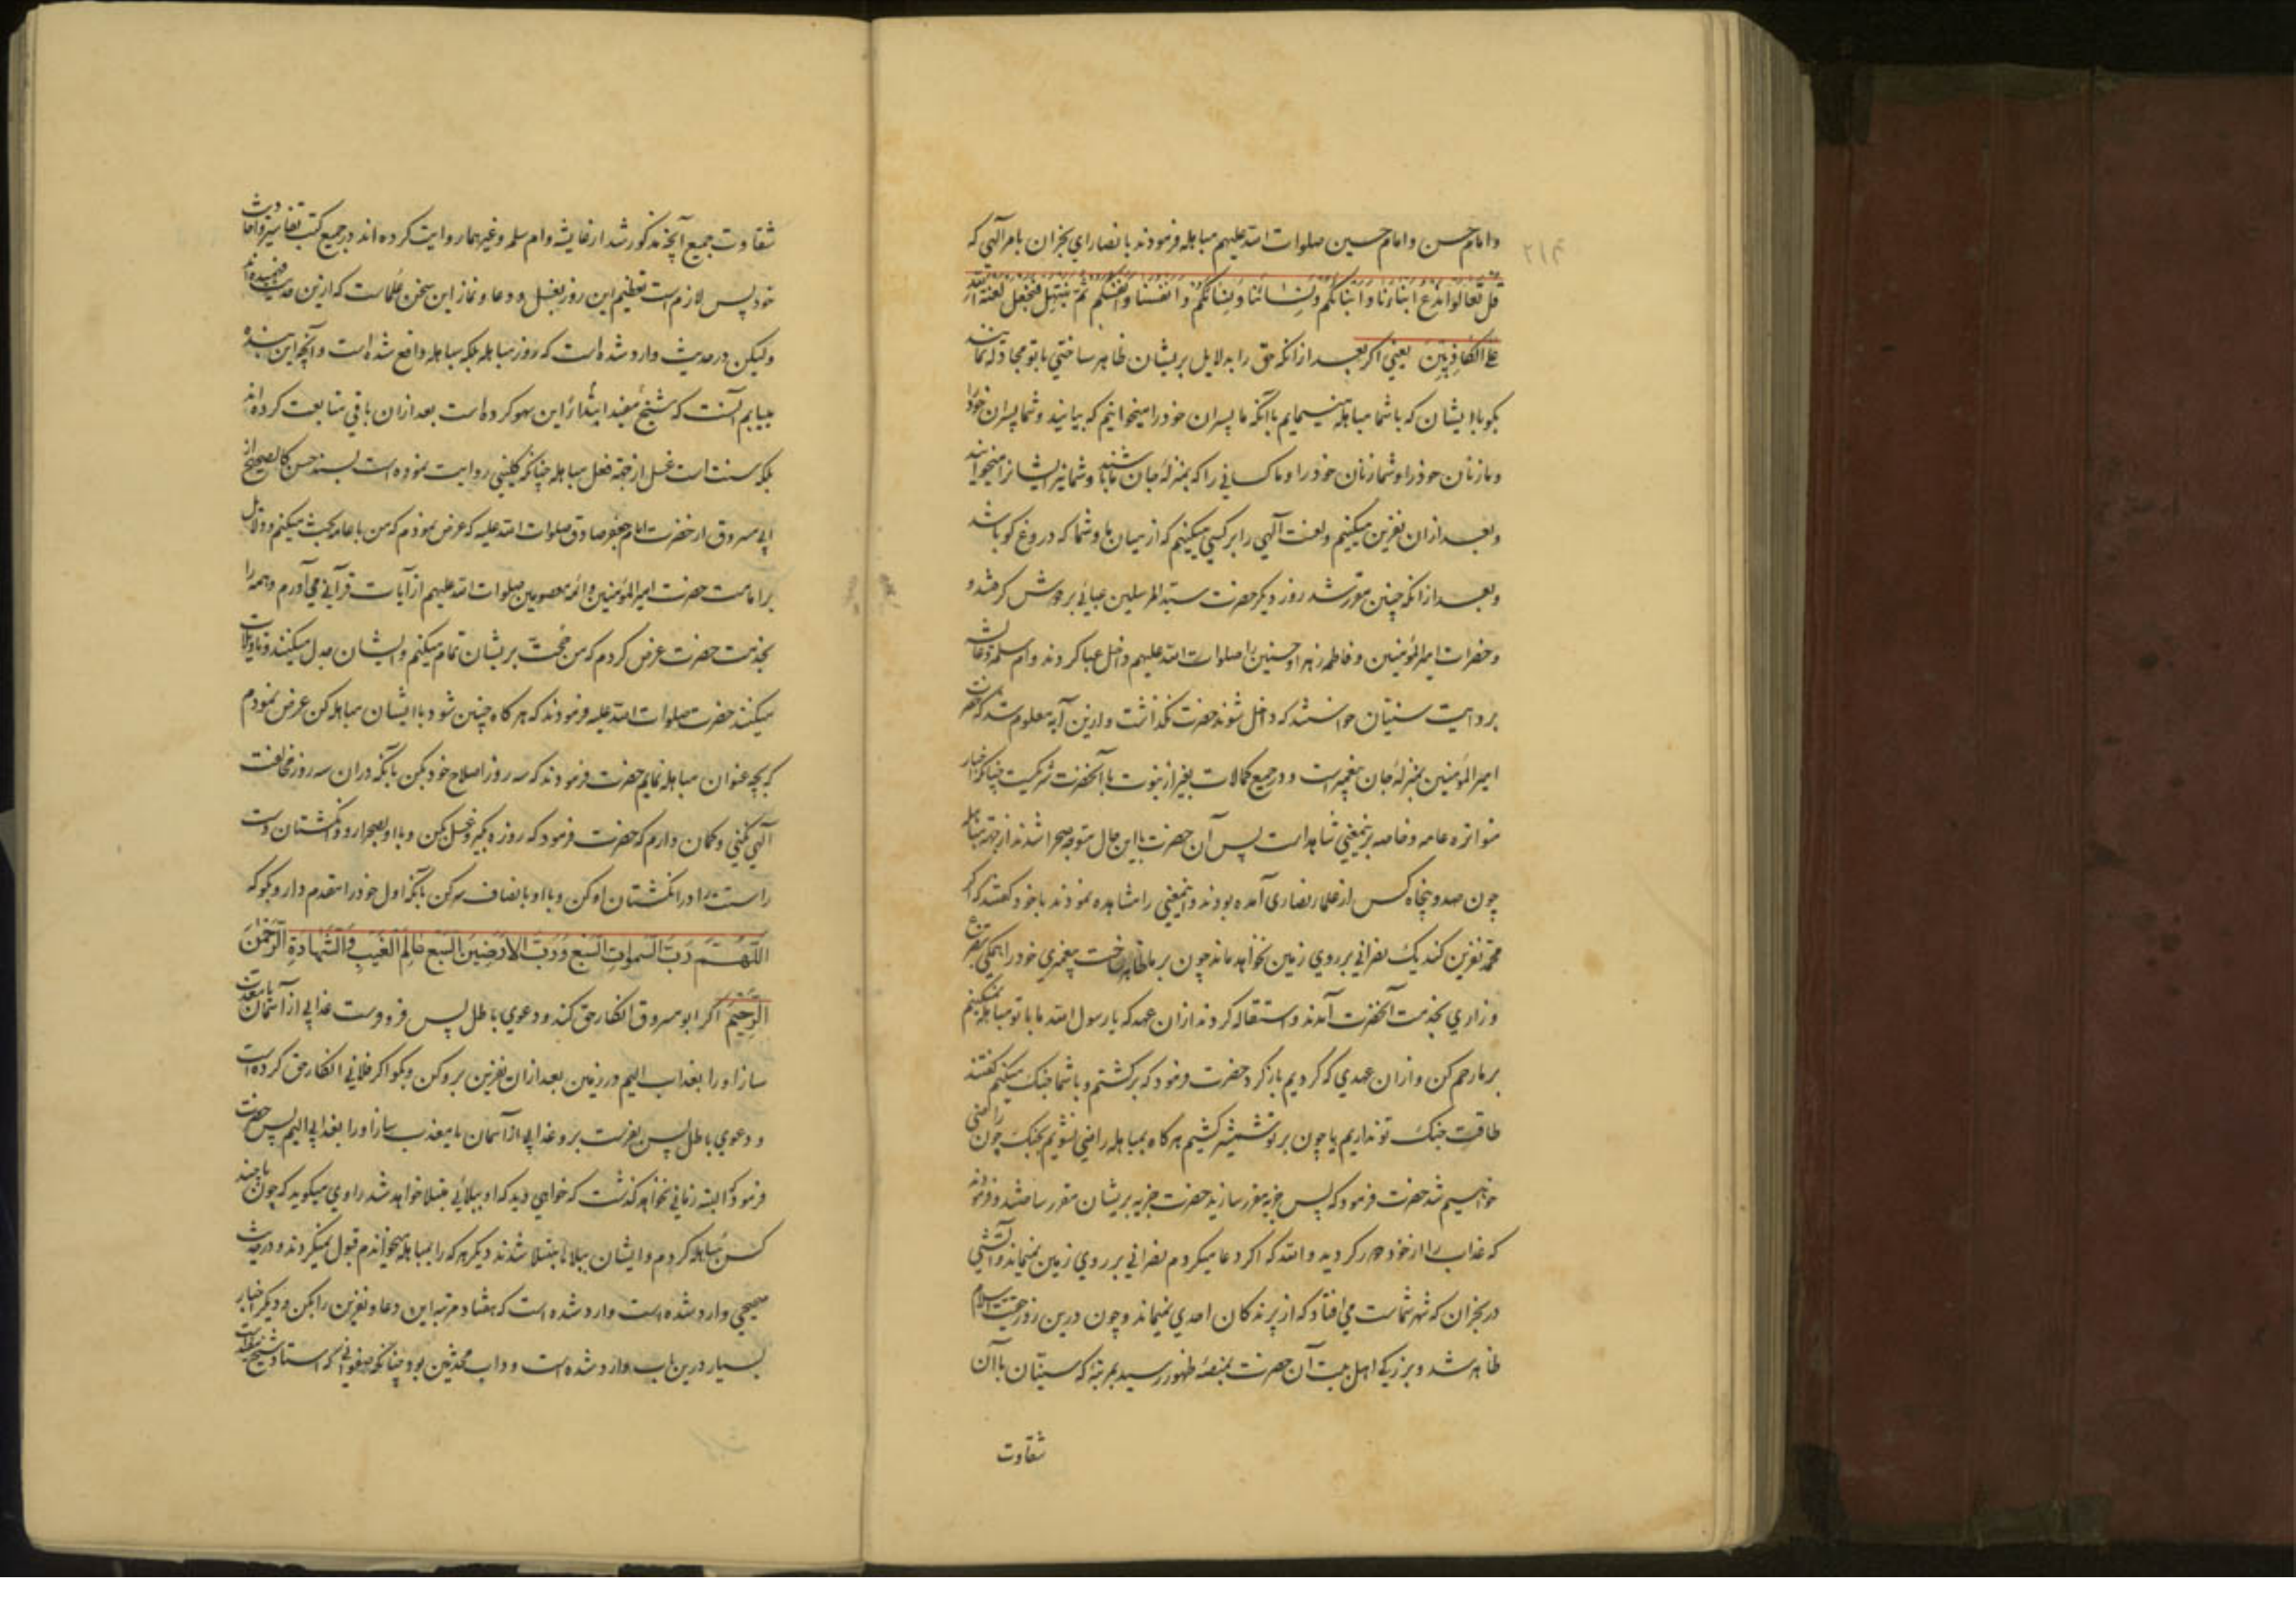 وامام حسن وامام حسین صلوات الله علیهم مباهله فرمودند با نصارای نجران بامر الهی که
قل تعالوا ندع ابناءنا وابناءكم ونسائنا ونسائكم وانفسنا وانفسكم ثم نبتهل فنجعل لعنة الله
على الكاذبين یعنی اگر بعد از انکه حق را بدلایل بریشان ظاهر ساختی با تو مجادله نمایند
بکو با ایشان که با شما مباهله مینمایم باآنکه ما پسران خود را میخوانیم که بیایند و شما پسران خود را
وما زنان خود را و شما زنان خود را و ما کسانی را که بمنزله جان ما باشند و شما نیز ایشانرا میخوانید
وبعد ازان نفرین میکنیم ولعنت الهی را بر کسی میکنیم که از میان ما و شما که دروغ کو باشد
وبعد از انکه چنین مقرر شد روز دیکر حضرت سید المرسلین عبائی بر دوش کرفتند و
و حضرات امیر المؤمنین و فاطمه زهرا و حسنین را صلوات الله علیهم داخل عبا کردند وام سلمه وعایشه
بروایت سنیان خواستند که داخل شوند حضرت نکذاشت وازین آیه معلوم شد که حضرت
امیر المؤمنین بمنزله جان پیغمبر است و درجمیع کمالات بغیر از نبوت با آنحضرت شریکست چنانکه اخبار
متواتره عامه وخاصه برینمعنی شاهد است پس آن حضرت با این حال متوجه صحرا شدند از جهة مباهله
چون صد و پنجاه کس از علماء نصاری آمده بودند واینمعنی را مشاهده نمودند با خود کفتند که اکر
محمد نفرین کند یک نصرانی بر روی زمین نخواهد ماند چون بر ما ظاهر ساخت پیغمبری خود را همکی بتضرع
وزاری بخدمت آنحضرت آمدند واستقاله کردند ازان عهد که یا رسول الله ما با تو مباهله نمیکنیم
بر ما رحم کن وازان عهدی که کردیم باز کرد حضرت فرمود که برکشتم و با شما جنک میکنیم کفتند
طاقت جنک تو نداریم یا چون بر تو شمشیر کشیم هر کاه بمباهله راضی نشویم بجنک چون راضی
خواهیم شد حضرت فرمود که پس جزیه مقرر سازید حضرت جزیه بریشان مقرر ساختند و فرمودند
که عذاب را از خود دور کردید والله که اکر دعا میکردم نصرانی بر روی زمین نمیماند وآتشی
در نجران که شهر شماست می افتاد که از پرندکان احدی نمیماند وچون درین روز حقیت اسلام
ظاهر شد وبزرکی اهل بیت آن حضرت بمنصه ظهور رسید بمرتبه که سنیان با آن
شقاوت
شقاوت جمیع آنچه مذکور شد از عایشه وام سلمه وغیرهما روایت کرده اند در جمیع کتب تفاسیر واحادیث
خود پس لازم است تعظیم این روز بغسل و دعا و نماز این سخن علماست که ازین حدیث فهمیده اند
ولیکن در حدیث وارد شده است که روز مباهله بلکه مباهله واقع شده است وآنچه این بنده
مییابم آنست که شیخ مفید ابتداءً این سهو کرده است بعد ازان باقی متابعت کرده اند
بلکه سنت است غسل از جهة فعل مباهله چنانکه کلینی روایت نموده است بسند حسن کالصحیح از
ابی مسروق از حضرت امام جعفر صادق صلوات الله علیه که عرض نمودم که من با عامه بحث میکنم و دلایل
بر امامت حضرت امیر المؤمنین وائمه معصومین صلوات الله علیهم از آیات قرآنی می آورم و همه را
بخدمت حضرت عرض کردم که من حجت بریشان تمام میکنم وایشان جدل میکنند و تاویلات
میکنند حضرت صلوات الله علیه فرمودند که هر کاه چنین شود با ایشان مباهله کن عرض نمودم
که بچه عنوان مباهله نمایم حضرت فرمودند که سه روز اصلاح خود بکن بآنکه دران سه روز مخالفت
الهی نکنی وکمان دارم که حضرت فرمود که روزه بکیر و غسل بکن و با او بصحرا رو وانکشتان دست
راست را در انکشتان او کن و با او بانصاف سر کن بآنکه اول خود را مقدم دار و بکو که
اللهم رب السموات السبع ورب الارضين السبع عالم الغيب والشهادة الرحمن
الرحيم اکر ابو مسروق انکار حق کند و دعوی باطل پس فرو فرست عذابی از آسمان یا معذب
ساز او را بعذاب الیم در زمین بعد ازان نفرین برو کن و بکو اکر فلانی انکار حق کرده است
و دعوی باطل پس بفرست برو عذابی از آسمان یا معذب ساز او را بعذابی الیم پس حضرت
فرمود که البته زمانی نخواهد کذشت که خواهی دید که او ببلائی مبتلا خواهد شد راوی میکوید که چون با چند
کس مباهله کردم وایشان ببلاها مبتلا شدند دیکر هر که را بمباهله میخواندم قبول نمیکردند و در حدیث
صحیحی وارد شده است وارد شده است که هفتاد مرتبه این دعا و نفرین را بکن و دیکر اخبار
بسیار درین باب وارد شده است و داب محدثین بود چنانکه صفوانی که استاد شیخ